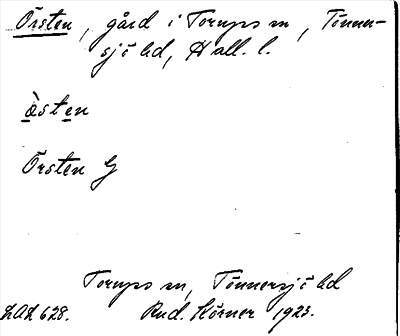 Örsten, gård i Torups sn, Tönner-
sjö hd, Hall. l.
òsten
Örsten G
Torups sn, Tönnersjö hd
LAL 628. Rud. Körner 1923.